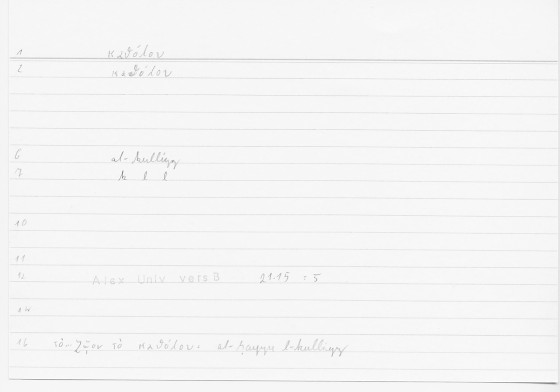 1 καθόλου
2 καθόλου
6 al-kullīyy
7 k l l
10
11
12 Alex Univ vers B 21.15 = 5
14
16 τὸ ζῷον τὸ καθόλου - al-ḥayyu l-kullīyy